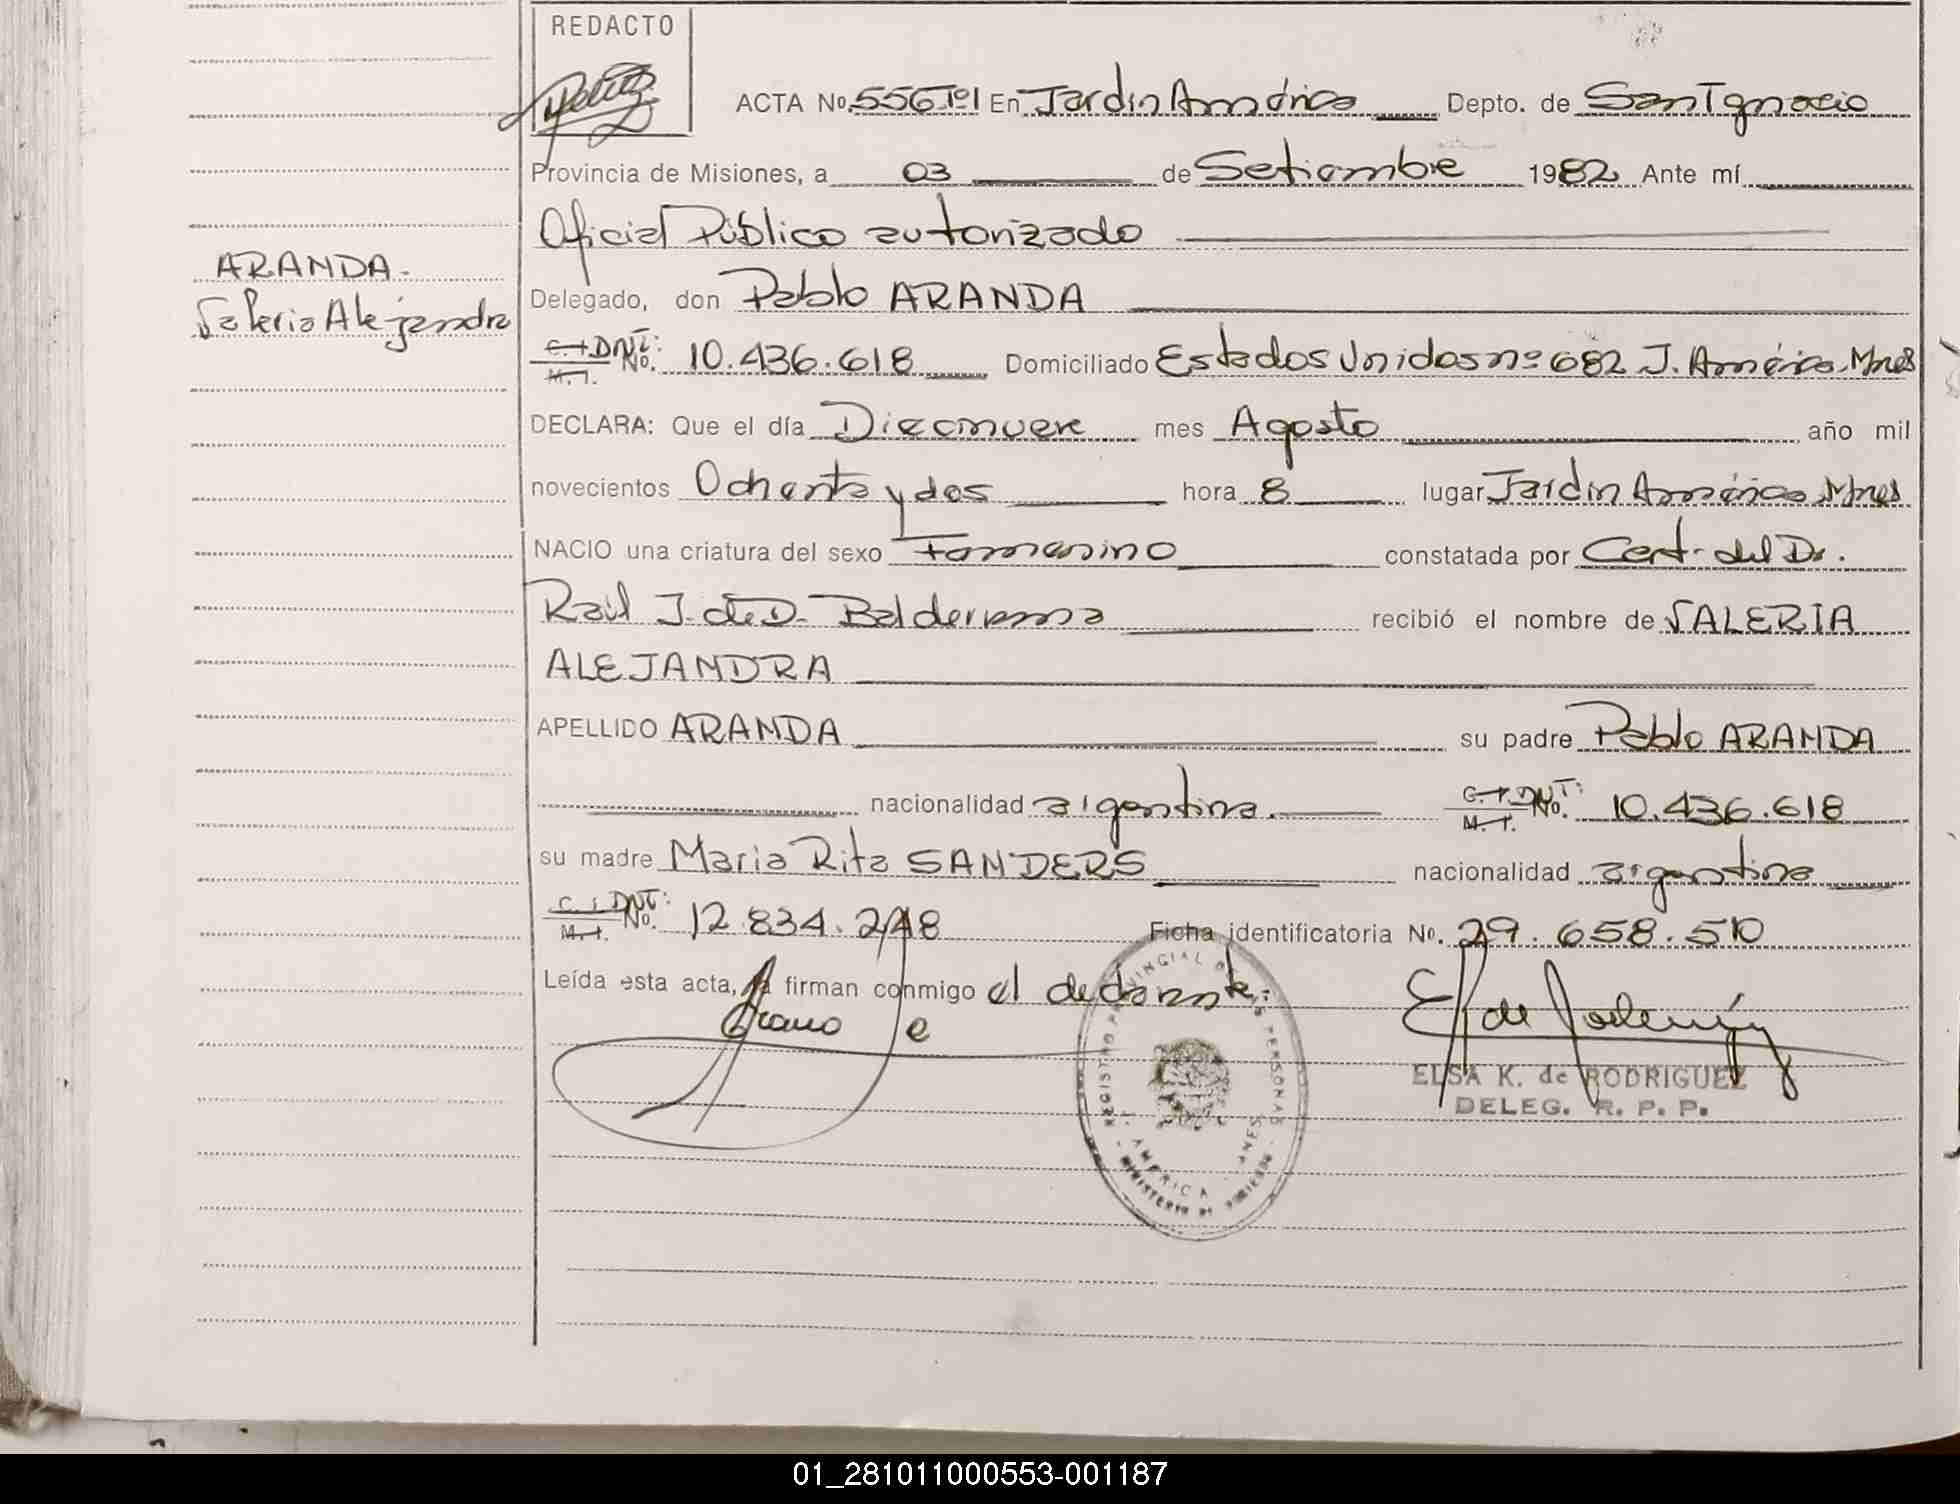 REDACTO
ACTA No. 556 Tº1 En Jardin América Depto. de San Ignacio
Provincia de Misiones, a 03 de Setiembre 1982 Ante mí
Oficial Público autorizado
ARANDA.
Valeria Alejandra
Delegado, don Pablo ARANDA
C.I. D.N.I: No. 10.436.618 Domiciliado Estados Unidos nº 682 J. América. Mnes
M.I.
DECLARA: Que el día Diecinueve mes Agosto año mil
novecientos Ochenta y dos hora 8 lugar Jardín América Mnes
NACIO una criatura del sexo Femenino constatada por Cert. del Dr.
Raúl J. de D. Balderrama recibió el nombre de VALERIA
ALEJANDRA
APELLIDO ARANDA su padre Pablo ARANDA
nacionalidad argentina. C.I. D.N.I: No. 10.436.618
M.I.
su madre Maria Rita SANDERS nacionalidad argentina
C.I. D.N.I: No. 12.834.248 Ficha identificatoria No. 29.658.510
M.I.
Leída esta acta, la firman conmigo el declarante:
REGISTRO PROVINCIAL DE LAS PERSONAS
AMERICA
MINISTERIO DE GOBIERNO
ELSA K. de RODRIGUEZ
DELEG. R. P. P.
01_281011000553-001187